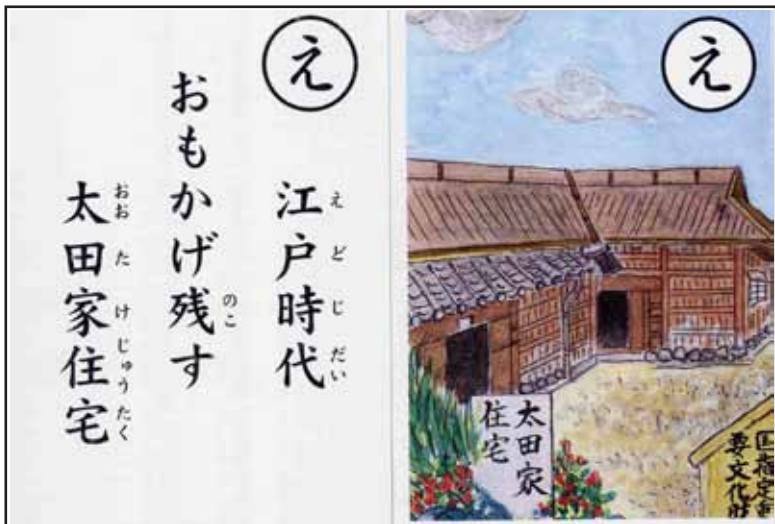 え
江戸時代
えどじだい
おもかげ残す
のこ
太田家住宅
おおたけじゅうたく
え
太田家
住宅
国指定重
要文化財